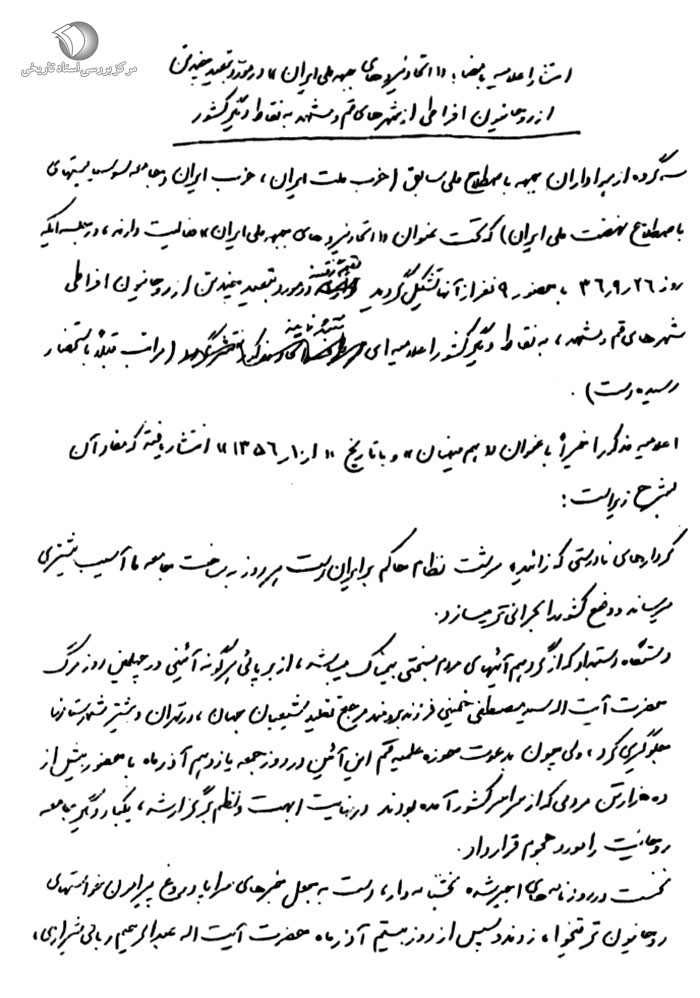 مرکز بررسی اسناد تاریخی
انتشار اعلامیه با امضاء: «اتحاد نیروهای جبهه ملی ایران» در مورد تبعید چند تن
از روحانیون افراطی از شهرهای قم و مشهد به نقاط دیگر کشور
سه گروه از هواداران جبهه باصطلاح ملی سابق (حزب ملت ایران، حزب ایران و جامعه سوسیالیستهای
باصطلاح نهضت ملی ایران) که تحت عنوان «اتحاد نیروهای جبهه ملی ایران» فعالیت دارند، در جلسه ایکه
روز ۳۶٫۹٫۲۶ با حضور ۹ نفر از آنها تشکیل گردید در مورد تبعید چند تن از روحانیون افراطی
شهرهای قم و مشهد، به نقاط دیگر کشور اعلامیه ای (مراتب قبلاً باستحضار
رسیده است).
اعلامیه مذکور اخیراً با عنوان «هم میهنان» و با تاریخ «۱۳۵۶٫۱۰٫۱» انتشار یافته که مفاد آن
بشرح زیر است:
کردارهای نادرستی که زائیده سرشت نظام حاکم بر ایران است هر روز به ساخت جامعه ما آسیب بیشتری
میرساند و وضع کشور را بحرانی تر میسازد.
دستگاه استبداد که از گردهم آئیهای مردم بسختی بیمناک میباشد، از برپائی هرگونه آئینی در چهلمین روز مرگ
حضرت آیت اله سید مصطفی خمینی فرزند برومند مرجع تقلید شیعیان جهان، در تهران و بیشتر شهرستانها
جلوگیری کرد، ولی چون بدعوت حوزه علمیه قم این آئین در روز جمعه یازدهم آذرماه با حضور بیش از
ده هزار تن مردمی که از سراسر کشور آمده بودند در نهایت ابهت و نظم برگزار شد، یکبار دیگر جامعه
روحانیت را مورد هجوم قرار داد.
نخست در روزنامه های اجیر شده بخشنامه دار، دست به جعل خبرهای سراپا دروغ پیرامون خواستهای
روحانیون ترقیخواه زدند و سپس از روز بیستم آذرماه حضرت آیت اله عبدالرحیم ربانی شیرازی،